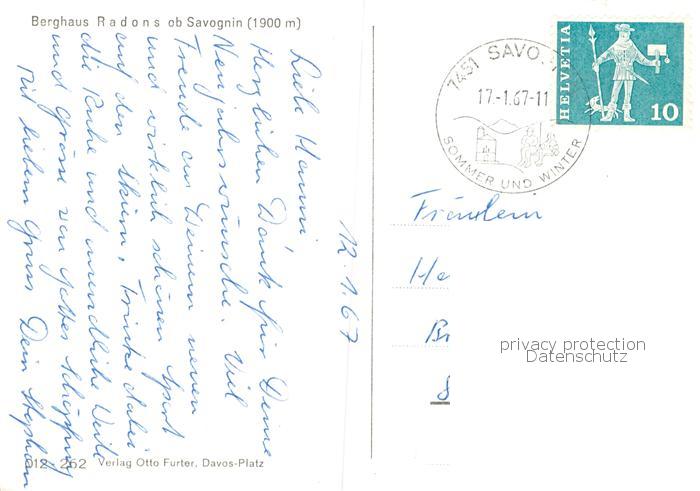 Berghaus Radons ob Savognin (1900 m)
12.1.67
Liebe Hanni
Herzlichen Dank für Deine
Neujahrswünsche. Viel
Freude an Deinem neuen
und wirklich schönen Sport
auf den Skiern, Trinke dabei
die Ruhe und unendliche Weite
und Grösse von Gottes Schöpfung
Mit liebem Gruss Dein Stephan
012 - 252 Verlag Otto Furter, Davos-Platz
7451 SAVO
17-1.67-11
SOMMER UND WINTER
HELVETIA
10
Fräulein
He
Br
8
privacy protection
Datenschutz